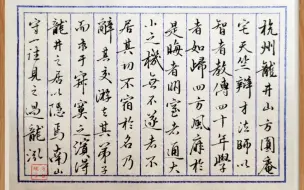 杭州龍井山方圓庵
天竺辯才法師以
智者教傳四十年學
者如歸四方風靡於
是晦者明窒者通大
小之機無不遂者不
居其功不宿於名乃
辭其交游去其弟子
而求于寂寞之濱得
龍井之居以隱焉南山
守一往見之過龍泓